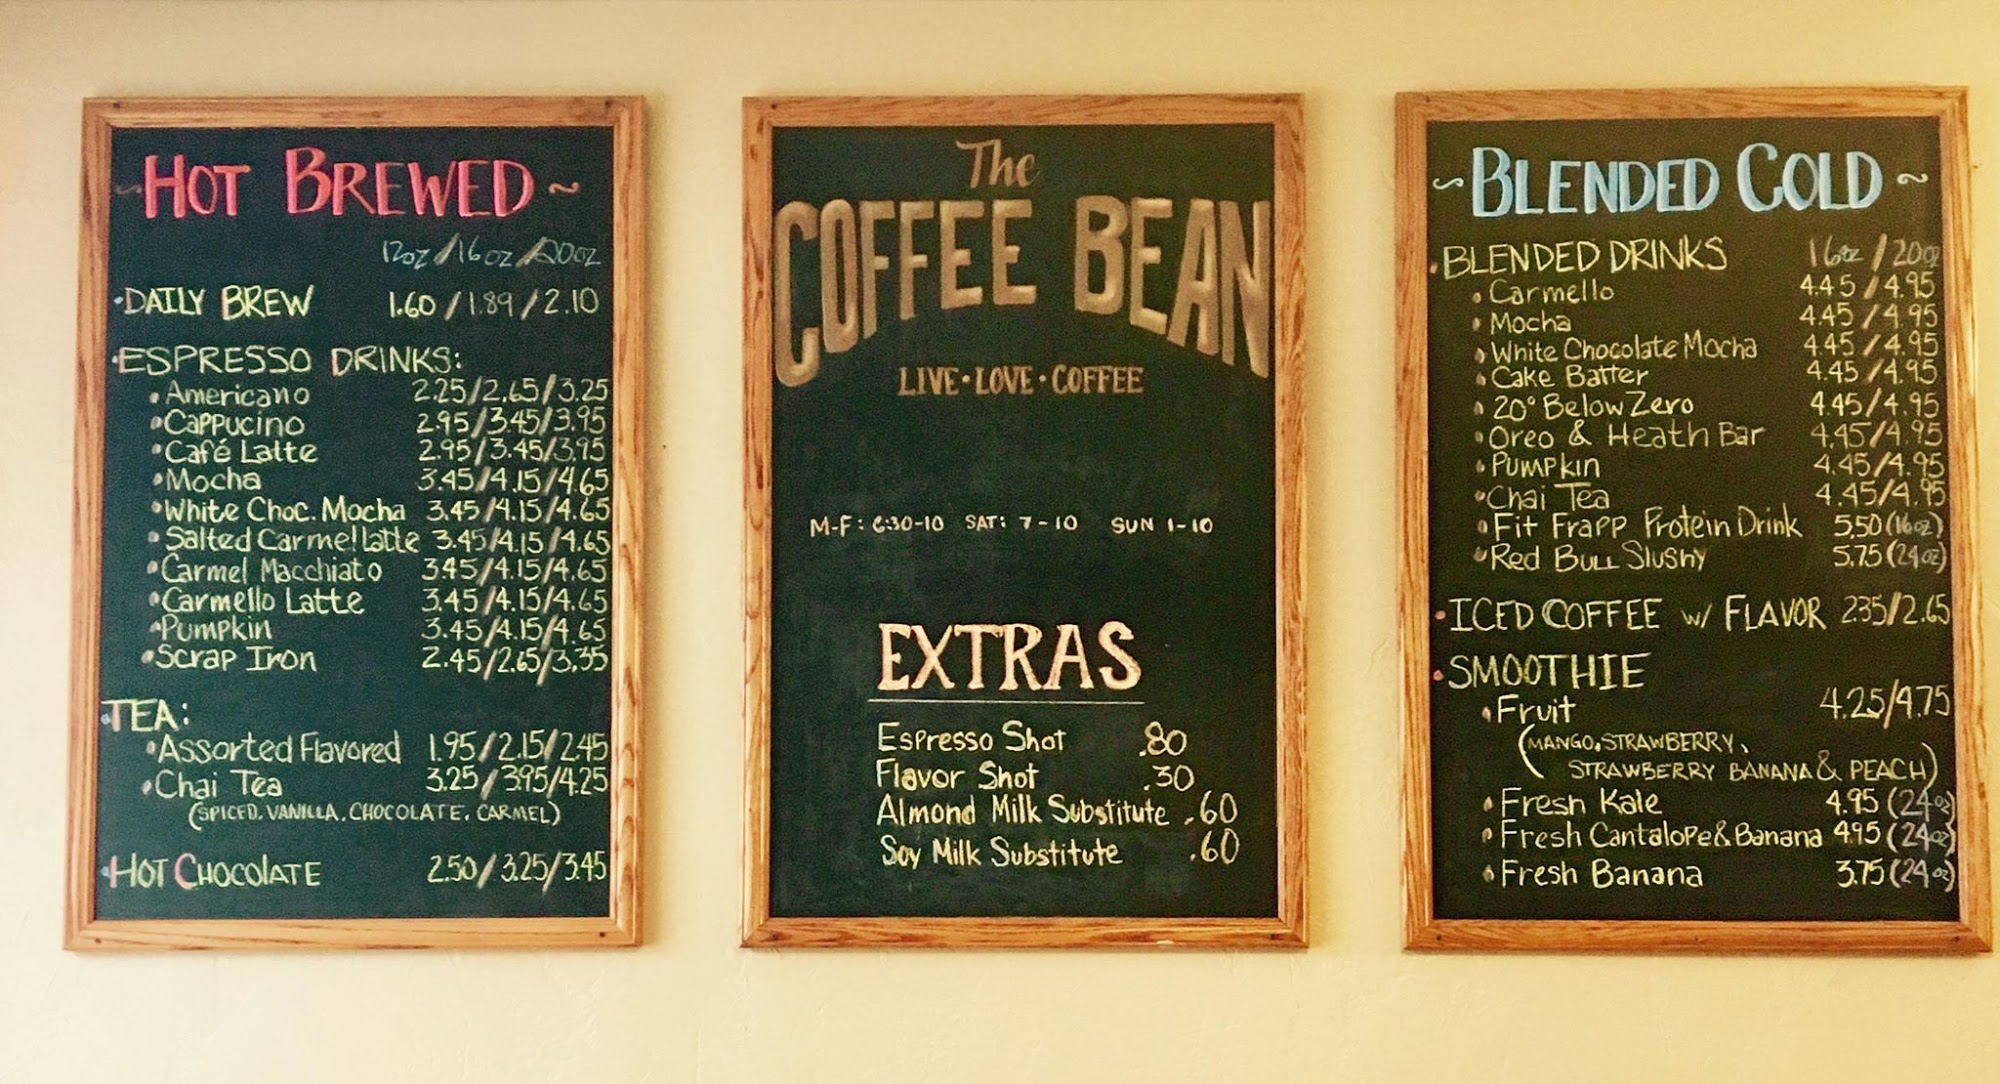 ~HOT BREWED~
12oz/16oz/20oz
•DAILY BREW 1.60/1.89/2.10
•ESPRESSO DRINKS:
•Americano 2.25/2.65/3.25
•Cappucino 2.95/3.45/3.95
•Café Latte 2.95/3.45/3.95
•Mocha 3.45/4.15/4.65
•White Choc. Mocha 3.45/4.15/4.65
•Salted Carmel latte 3.45/4.15/4.65
•Carmel Macchiato 3.45/4.15/4.65
•Carmello Latte 3.45/4.15/4.65
•Pumpkin 3.45/4.15/4.65
•Scrap Iron 2.45/2.65/3.35
•TEA:
•Assorted Flavored 1.95/2.15/2.45
•Chai Tea 3.25/3.95/4.25
(SPICED, VANILLA, CHOCOLATE, CARMEL)
•HOT CHOCOLATE 2.50/3.25/3.45
The
COFFEE BEAN
LIVE•LOVE•COFFEE
M-F: 6:30-10 SAT: 7-10 SUN 1-10
EXTRAS
Espresso Shot .80
Flavor Shot .30
Almond Milk Substitute .60
Soy Milk Substitute .60
~BLENDED COLD~
•BLENDED DRINKS 16oz/20oz
•Carmello 4.45/4.95
•Mocha 4.45/4.95
•White Chocolate Mocha 4.45/4.95
•Cake Batter 4.45/4.95
•20° Below Zero 4.45/4.95
•Oreo & Heath Bar 4.45/4.95
•Pumpkin 4.45/4.95
•Chai Tea 4.45/4.95
•Fit Frapp Protein Drink 5.50(16oz)
•Red Bull Slushy 5.75(24oz)
•ICED COFFEE w/ FLAVOR 2.35/2.65
•SMOOTHIE
•Fruit 4.25/4.75
(MANGO, STRAWBERRY,
STRAWBERRY BANANA & PEACH)
•Fresh Kale 4.95 (24oz)
•Fresh Cantalope & Banana 4.95 (24oz)
•Fresh Banana 3.75 (24oz)